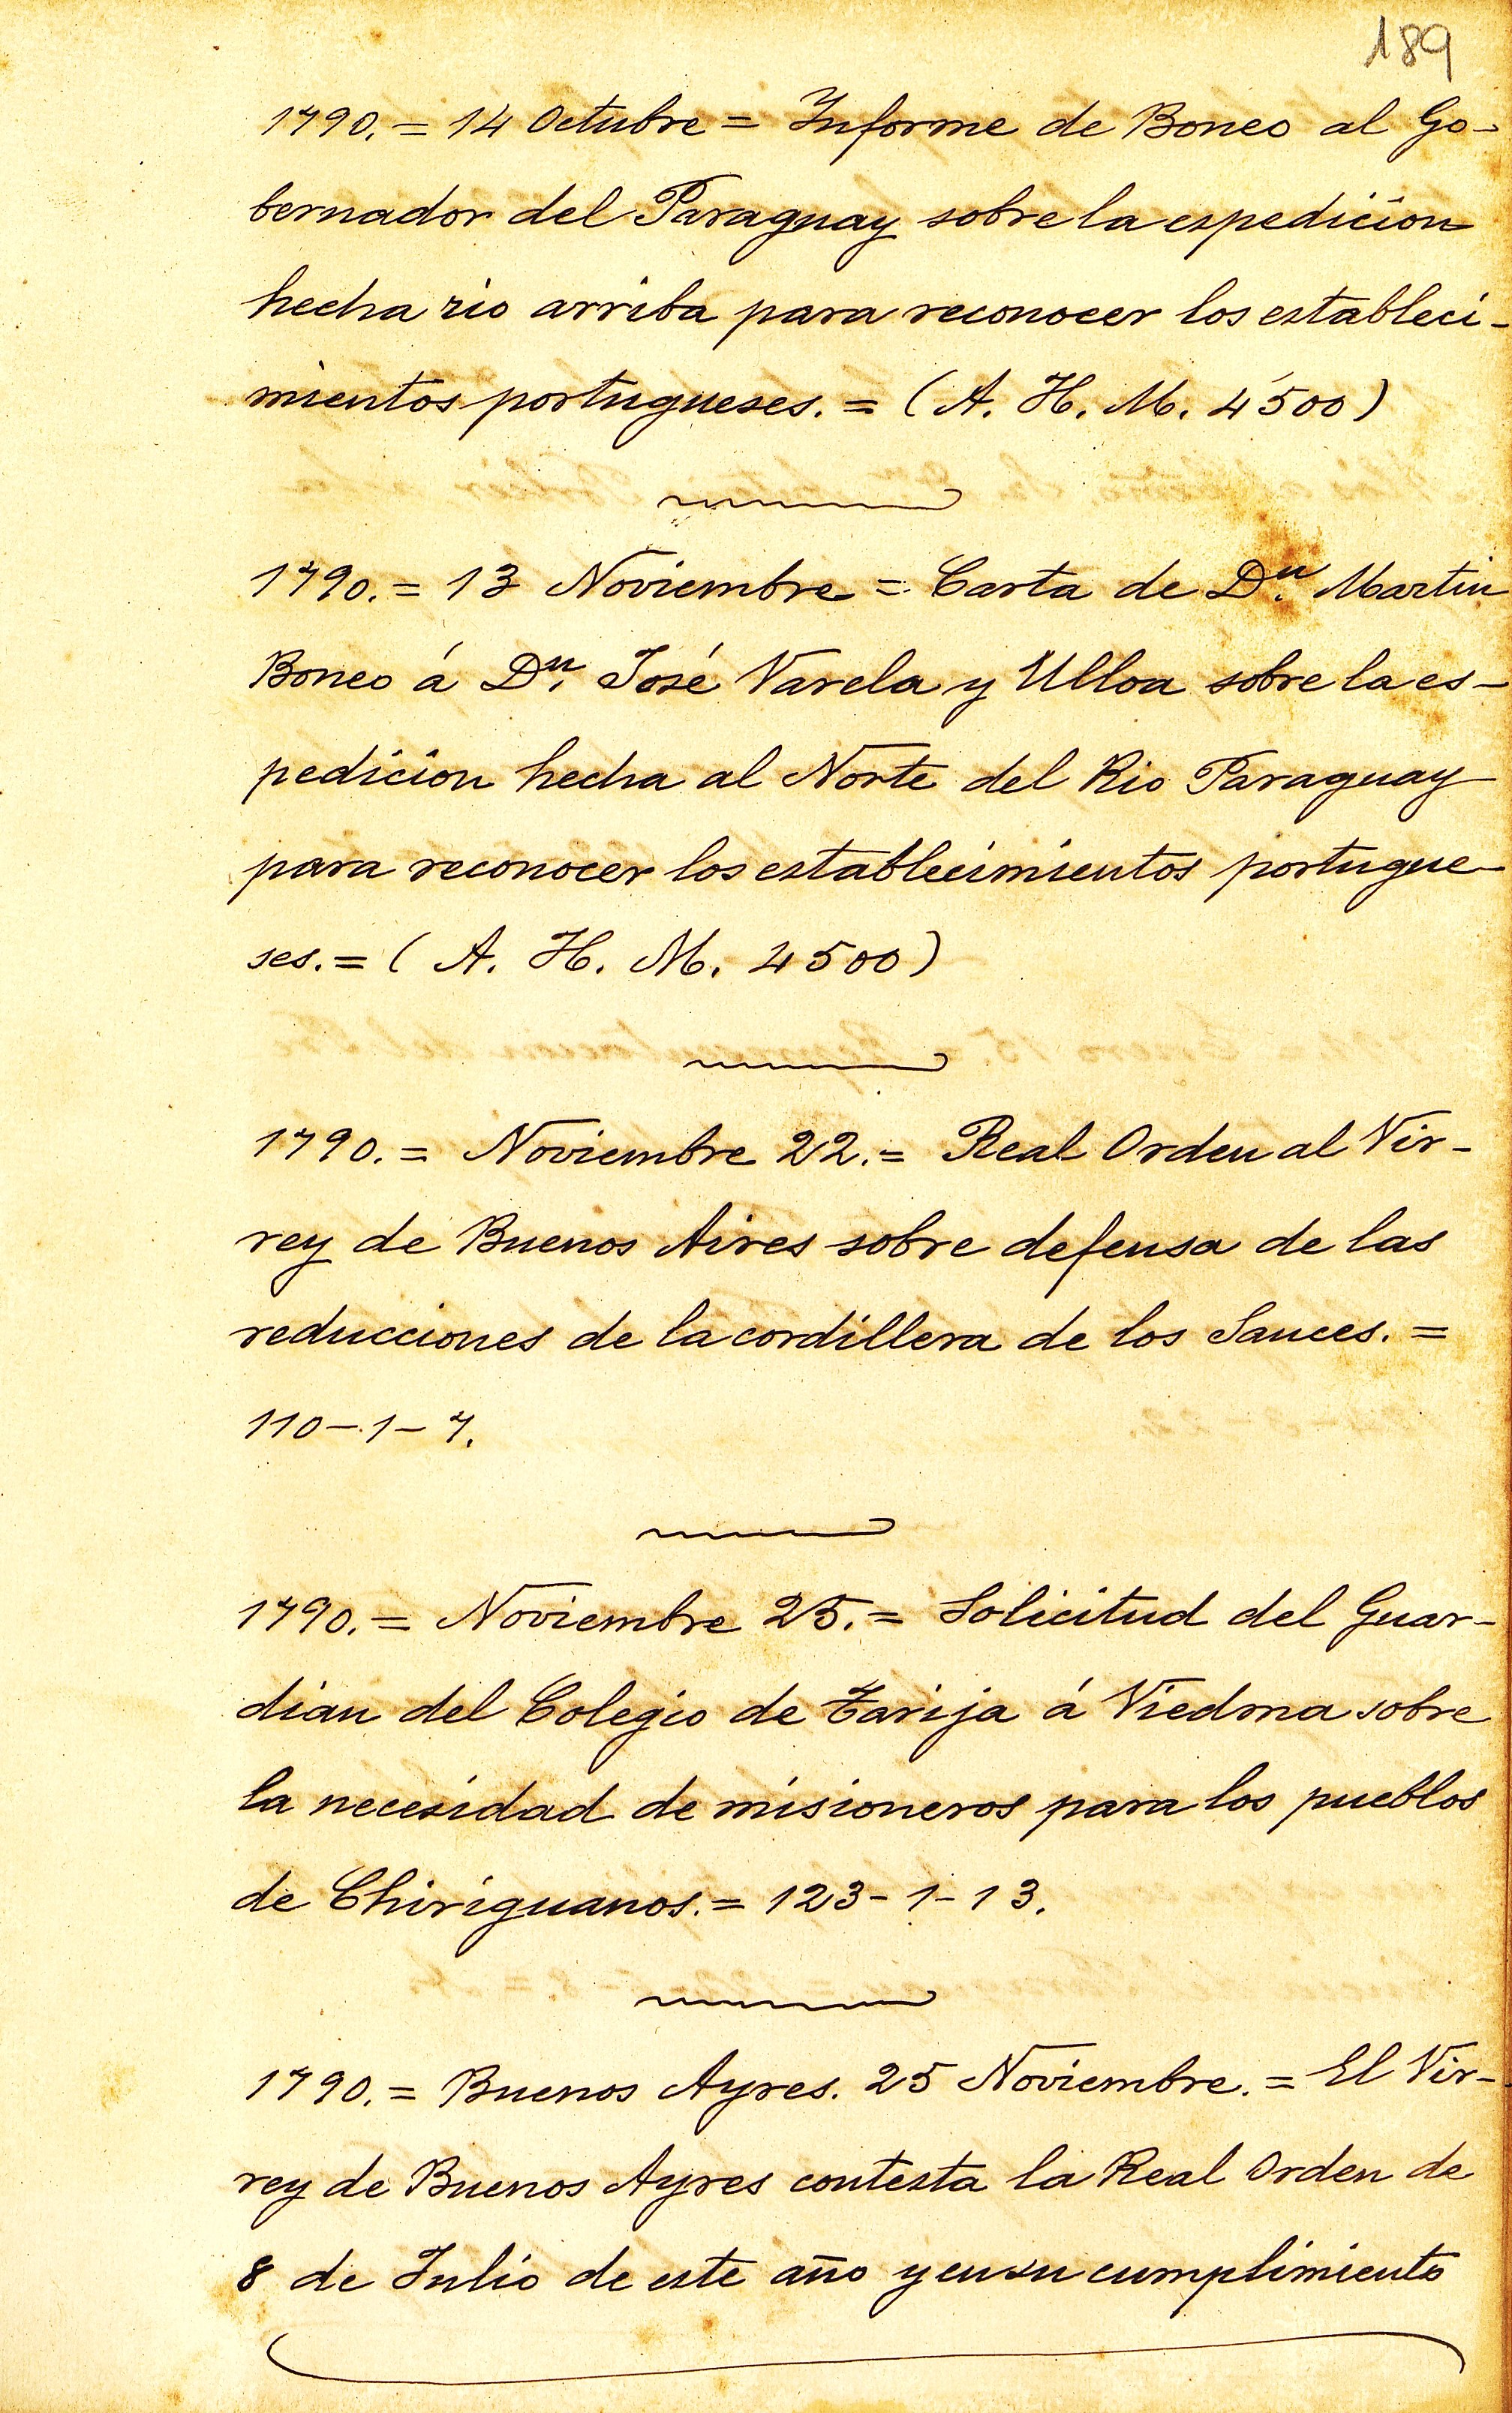 189
1790. = 14 Octubre = Informe de Boneo al Go-
bernador del Paraguay sobre la espedicion
hecha rio arriba para reconocer los estableci-
mientos portugueses. = (A. H. M. 4500)
1790. = 13 Noviembre = Carta de Dn. Martin
Boneo á Dn. José Varela y Ulloa sobre la es-
pedicion hecha al Norte del Rio Paraguay
para reconocer los establecimientos portugue-
ses. = (A. H. M. 4500)
1790. = Noviembre 22. = Real Orden al Vir-
rey de Buenos Aires sobre defensa de las
reducciones de la cordillera de los Sauces. =
110-1-7.
1790. = Noviembre 25. = Solicitud del Guar-
dian del Colegio de Tarija á Viedma sobre
la necesidad de misioneros para los pueblos
de Chiriguanos. = 123-1-13.
1790. = Buenos Ayres. 25 Noviembre. = El Vir-
rey de Buenos Ayres contesta la Real Orden de
8 de Julio de este año y en su cumplimiento